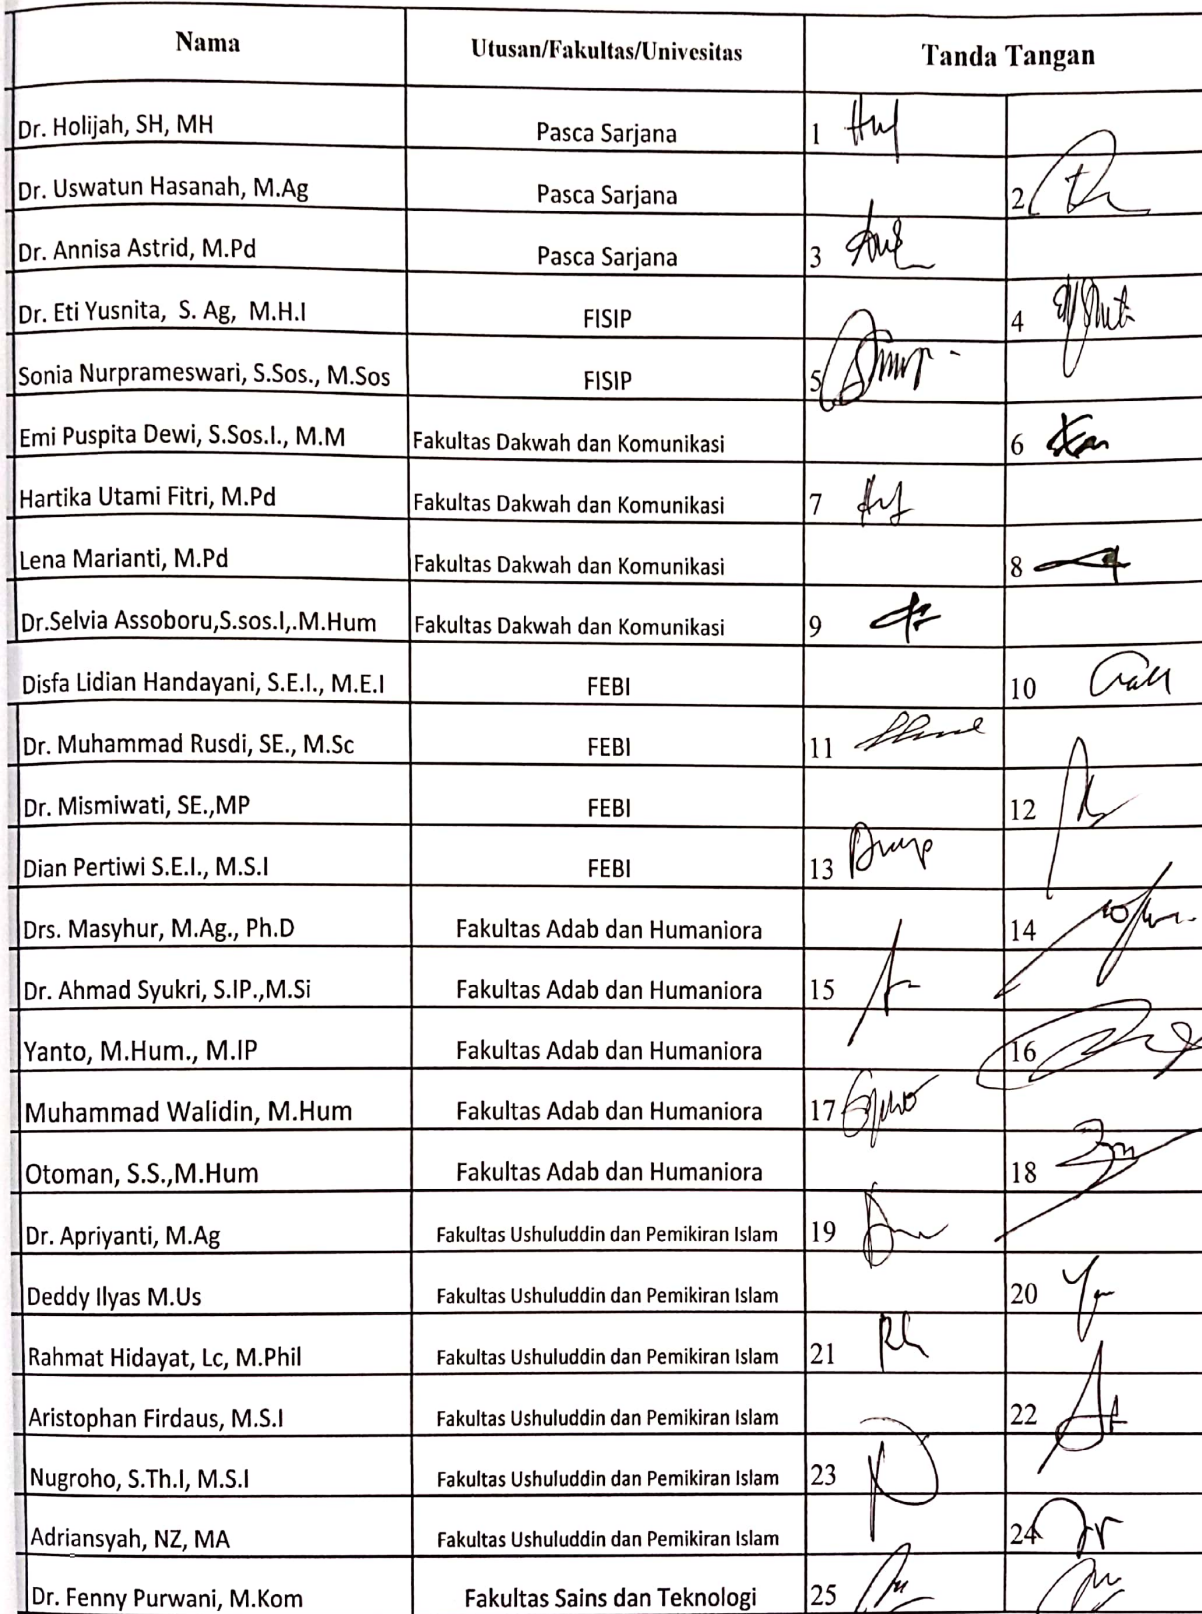 Nama Utusan/Fakultas/Univesitas Tanda Tangan
Dr. Holijah, SH, MH Pasca Sarjana 1
Dr. Uswatun Hasanah, M.Ag Pasca Sarjana 2
Dr. Annisa Astrid, M.Pd Pasca Sarjana 3
Dr. Eti Yusnita, S. Ag, M.H.I FISIP 4
Sonia Nurprameswari, S.Sos., M.Sos FISIP 5
Emi Puspita Dewi, S.Sos.I., M.M Fakultas Dakwah dan Komunikasi 6
Hartika Utami Fitri, M.Pd Fakultas Dakwah dan Komunikasi 7
Lena Marianti, M.Pd Fakultas Dakwah dan Komunikasi 8
Dr.Selvia Assoboru,S.sos.I,.M.Hum Fakultas Dakwah dan Komunikasi 9
Disfa Lidian Handayani, S.E.I., M.E.I FEBI 10
Dr. Muhammad Rusdi, SE., M.Sc FEBI 11
Dr. Mismiwati, SE.,MP FEBI 12
Dian Pertiwi S.E.I., M.S.I FEBI 13
Drs. Masyhur, M.Ag., Ph.D Fakultas Adab dan Humaniora 14
Dr. Ahmad Syukri, S.IP.,M.Si Fakultas Adab dan Humaniora 15
Yanto, M.Hum., M.IP Fakultas Adab dan Humaniora 16
Muhammad Walidin, M.Hum Fakultas Adab dan Humaniora 17
Otoman, S.S.,M.Hum Fakultas Adab dan Humaniora 18
Dr. Apriyanti, M.Ag Fakultas Ushuluddin dan Pemikiran Islam 19
Deddy Ilyas M.Us Fakultas Ushuluddin dan Pemikiran Islam 20
Rahmat Hidayat, Lc, M.Phil Fakultas Ushuluddin dan Pemikiran Islam 21
Aristophan Firdaus, M.S.I Fakultas Ushuluddin dan Pemikiran Islam 22
Nugroho, S.Th.I, M.S.I Fakultas Ushuluddin dan Pemikiran Islam 23
Adriansyah, NZ, MA Fakultas Ushuluddin dan Pemikiran Islam 24
Dr. Fenny Purwani, M.Kom Fakultas Sains dan Teknologi 25